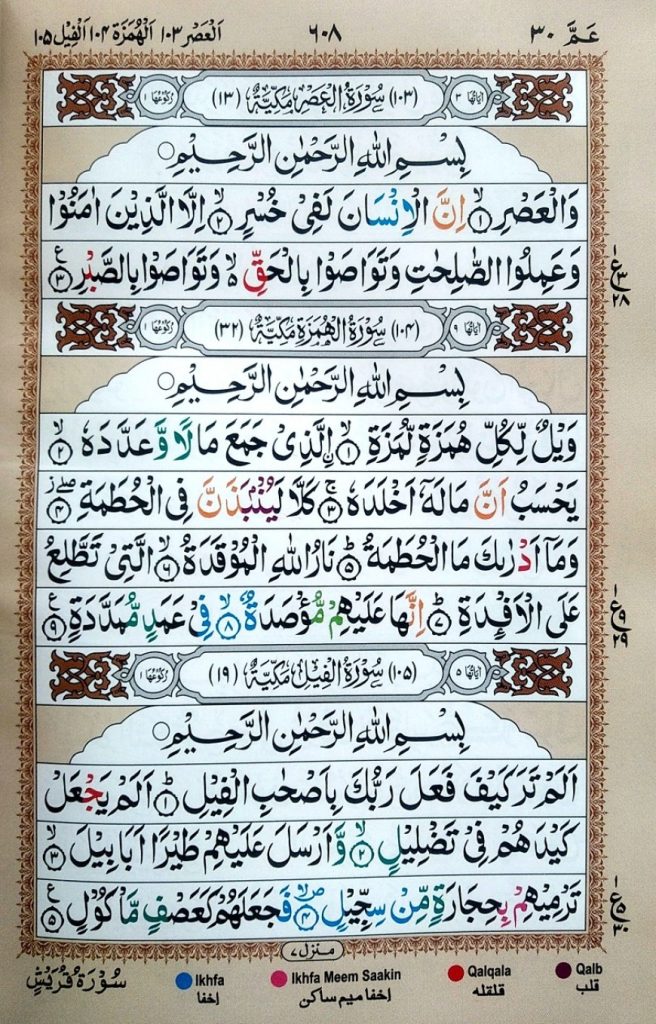 عَمَّ ٣٠
٦٠٨
اَلْعَصْر ١٠٣ اَلْهُمَزَة ١٠٤ اَلْفِيْل ١٠٥
اٰيَاتُهَا ٣ (١٠٣) سُوْرَةُ الْعَصْرِ مَكِّيَّةٌ (١٣) رُكُوْعُهَا ١
بِسْمِ اللهِ الرَّحْمٰنِ الرَّحِيْمِ ○
وَالْعَصْرِ ۙ﴿١﴾ اِنَّ الْاِنْسَانَ لَفِيْ خُسْرٍ ۙ﴿٢﴾ اِلَّا الَّذِيْنَ اٰمَنُوْا
وَعَمِلُوا الصّٰلِحٰتِ وَتَوَاصَوْا بِالْحَقِّ ۙ۬ وَتَوَاصَوْا بِالصَّبْرِ ﴿٣﴾ ع
٣ ع ٢٨
اٰيَاتُهَا ٩ (١٠٤) سُوْرَةُ الْهُمَزَةِ مَكِّيَّةٌ (٣٢) رُكُوْعُهَا ١
بِسْمِ اللهِ الرَّحْمٰنِ الرَّحِيْمِ ○
وَيْلٌ لِّكُلِّ هُمَزَةٍ لُّمَزَةِ ۙ﴿١﴾ اۨلَّذِيْ جَمَعَ مَالًا وَّعَدَّدَهٗ ۙ﴿٢﴾
يَحْسَبُ اَنَّ مَالَهٗۤ اَخْلَدَهٗ ۚ﴿٣﴾ كَلَّا لَيُنْۢبَذَنَّ فِي الْحُطَمَةِ ۖز﴿٤﴾
وَمَاۤ اَدْرٰىكَ مَا الْحُطَمَةُ ؕ﴿٥﴾ نَارُ اللهِ الْمُوْقَدَةُ ۙ﴿٦﴾ الَّتِيْ تَطَّلِعُ
عَلَى الْاَفْـِٕدَةِ ؕ﴿٧﴾ اِنَّهَا عَلَيْهِمْ مُّؤْصَدَةٌ ۙ﴿٨﴾ فِيْ عَمَدٍ مُّمَدَّدَةٍ ﴿٩﴾ ع
٩ ع ٢٩
اٰيَاتُهَا ٥ (١٠٥) سُوْرَةُ الْفِيْلِ مَكِّيَّةٌ (١٩) رُكُوْعُهَا ١
بِسْمِ اللهِ الرَّحْمٰنِ الرَّحِيْمِ ○
اَلَمْ تَرَ كَيْفَ فَعَلَ رَبُّكَ بِاَصْحٰبِ الْفِيْلِ ؕ﴿١﴾ اَلَمْ يَجْعَلْ
كَيْدَهُمْ فِيْ تَضْلِيْلٍ ۙ﴿٢﴾ وَّاَرْسَلَ عَلَيْهِمْ طَيْرًا اَبَابِيْلَ ۙ﴿٣﴾
تَرْمِيْهِمْ بِحِجَارَةٍ مِّنْ سِجِّيْلٍ ۪ۙ﴿٤﴾ فَجَعَلَهُمْ كَعَصْفٍ مَّاْكُوْلٍ ﴿٥﴾ ع
٥ ع ٣٠
منزل ٧
سُوْرَةُ قُرَيْشٍ
Ikhfa
إخفا
Ikhfa Meem Saakin
إخفا ميم ساكن
Qalqala
قلقله
Qalb
قلب